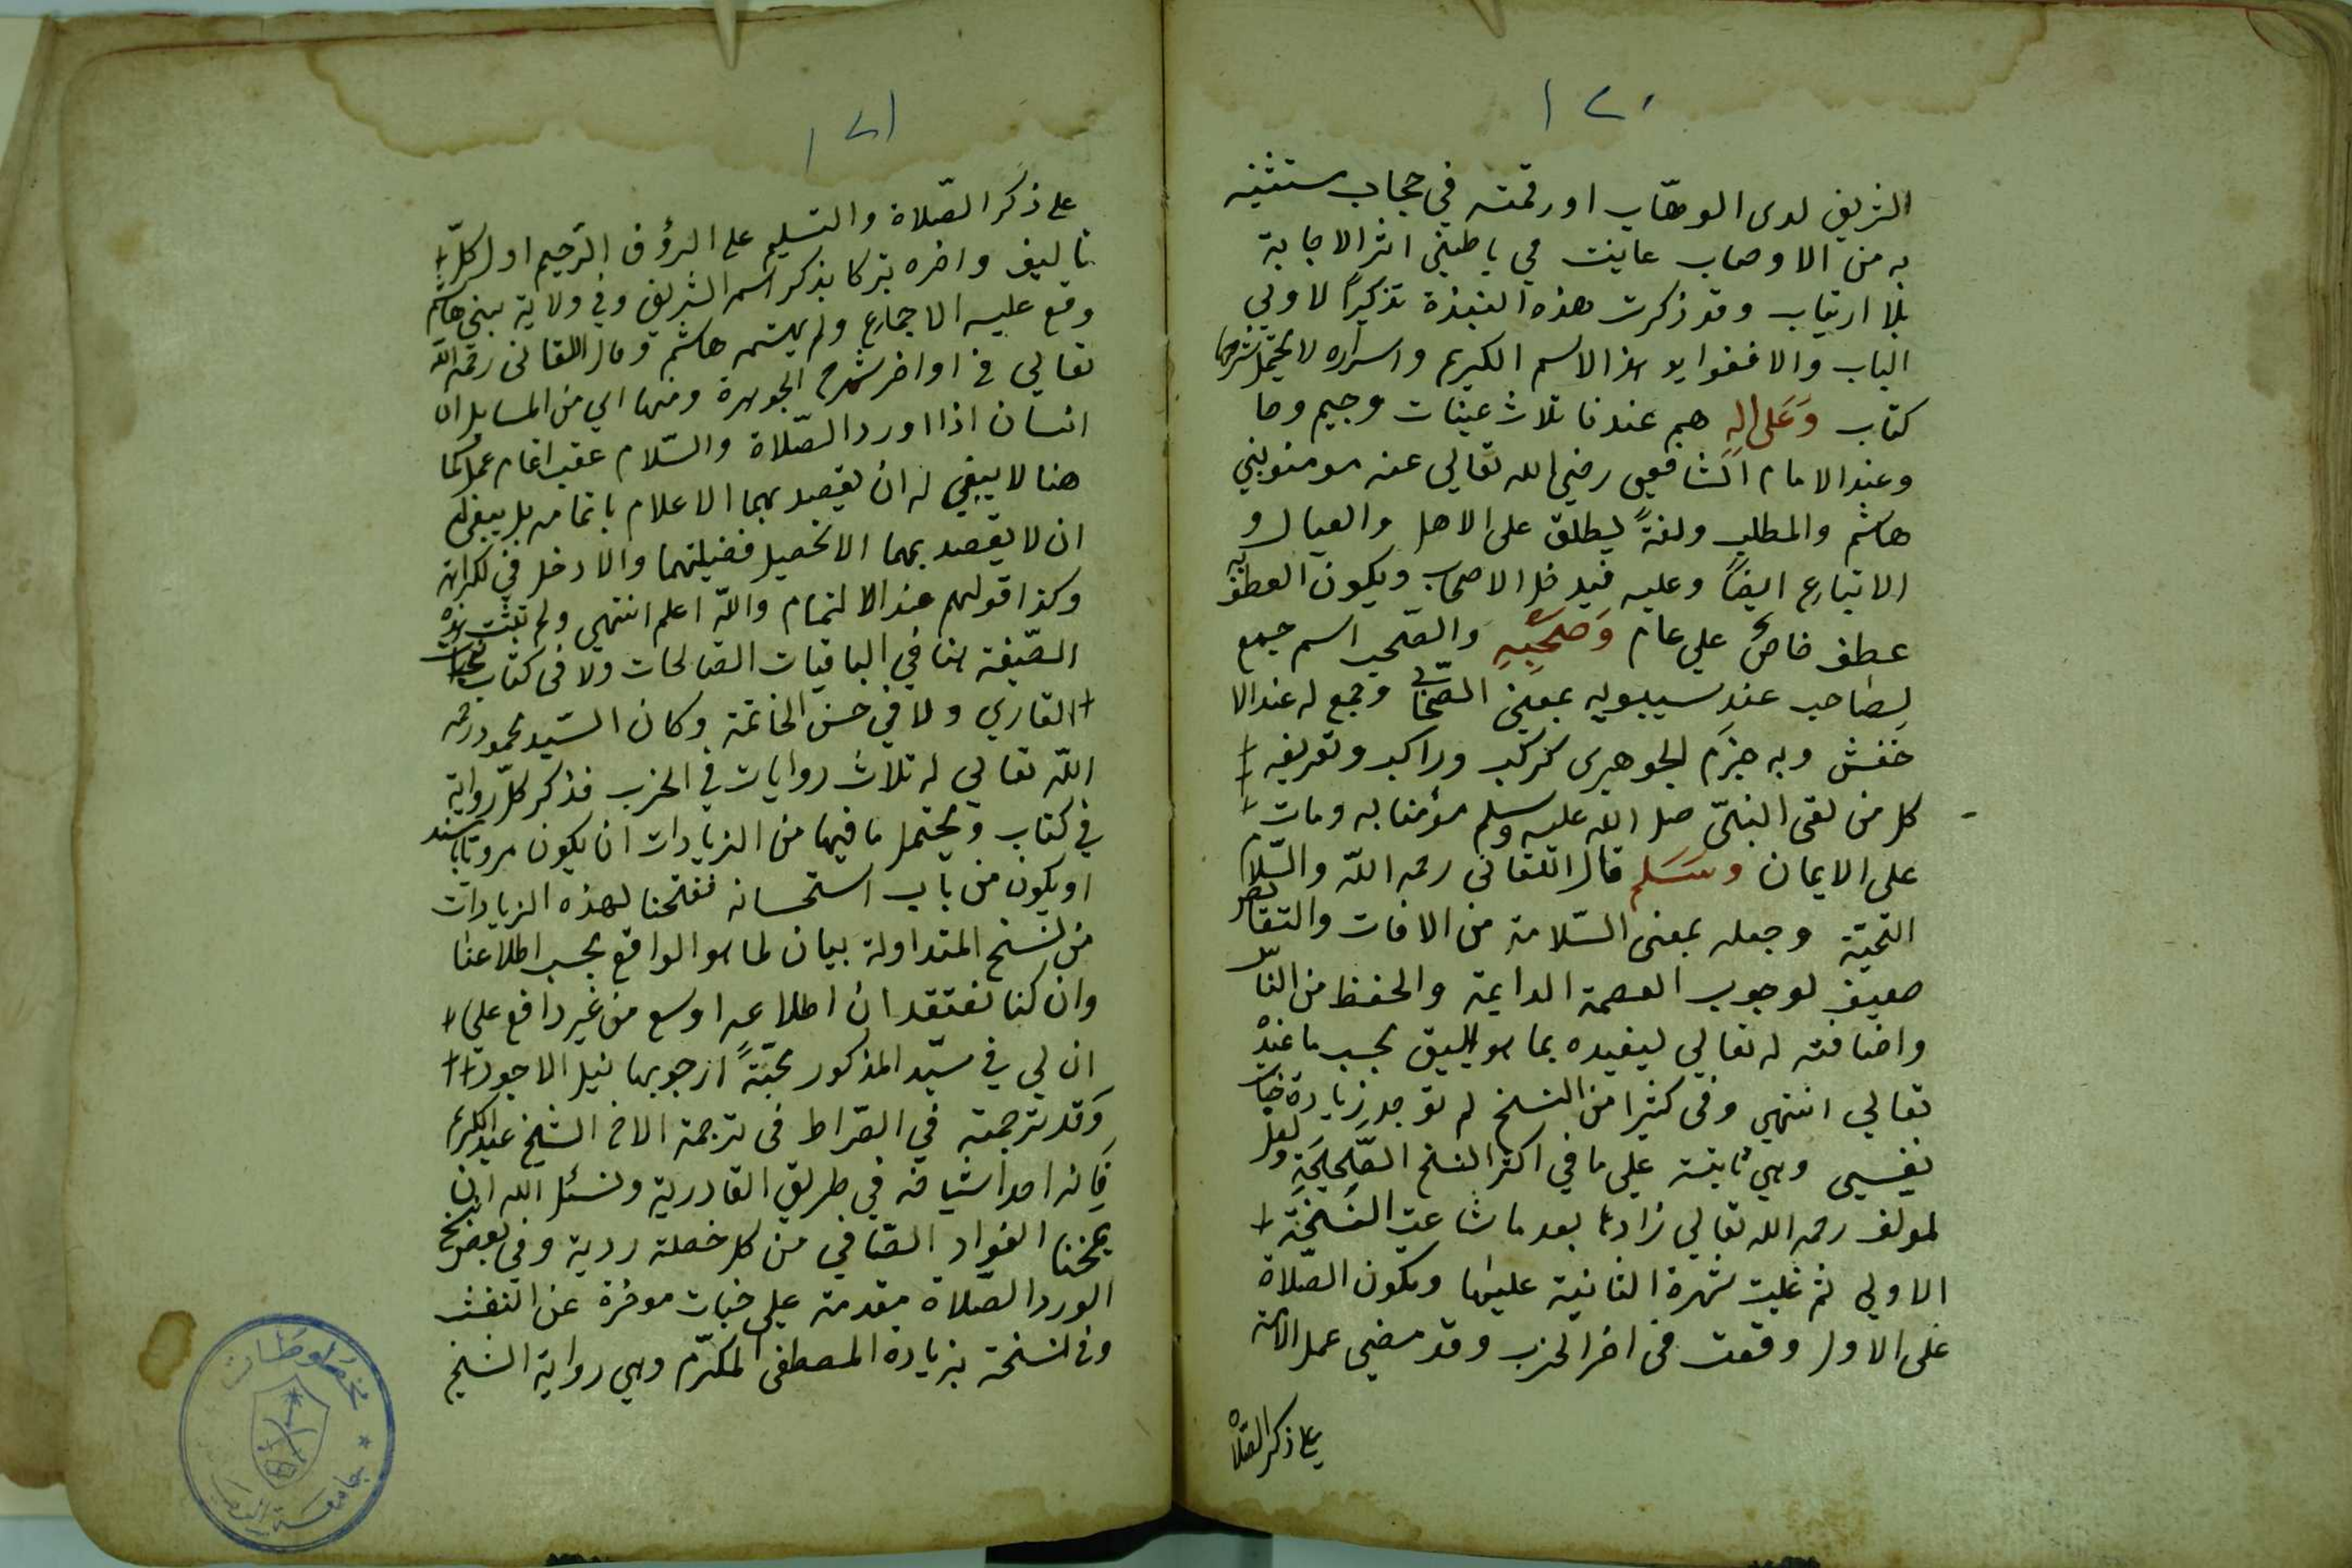 ١٢٠
الشريف لدى الوهاب او رقمته في حجاب ستشفيه
به من الاوصاب عاينت في باطني اثر الاجابة
بلا ارتياب وقد ذكرت هذه النبذة تذكيرًا لاولي
الباب والا ففوايد هذا الاسم الكريم واسراره لا يحتمل شرحها
كتاب وَعَلى الِهِ هم عندنا ثلاث عينات وجيم وحا
وعند الامام الشافعي رضي الله تعالى عنه مومنو بني
هاشم والمطلب ولغةً يطلق على الاهل والعيال و
الاتباع ايضًا وعليه فيدخل الاصحاب ويكون العطف به
عطف خاصٌ علي عام وَصَحْبِهِ والصّحب اسم جمع
لصاحب عند سيبويه بمعني الصّحابي وجمع له عند الا
خفش وبه جزَم الجوهرى كركب وراكب وتعريفه
كل من لقى النبيّ صلى الله عليه وسلم مؤمنا به ومات
على الايمان وسَلم قال اللقانى رحمه الله والسّلام
التحيّة وجعله بمعنى السّلامة من الافات والنقايص
ضعيف لوجوب العصمة الدايمة والحفظ من النّاس
واضافته له تعالي ليفيده بما هو اليق بحسب ما عنده
تعالي انتهي وفى كثيرا من النسخ لم توجد زيادة خبات
نفسي وهي ثابتة علي ما في اكثر النسخ الصَّحِيحَةِ ولعل
لمولف رحمه الله تعالي زادها بعد ما شاعت النسْخَة
الاولي ثم غلبت شهرة الثانية عليها وتكون الصّلاة
على الاول وقعت فى اخر الحزب وقد مضي عمل الامة
على ذكر الصّلاة
١٢١
على ذكر الصّلاة والتسليم على الرؤف الرّحيم اول كلّ
تاليف واخره تبركا بذكر اسمه الشريف وفي ولاية بني هاشم
وقع عليه الاجماع ولم يستمه هاشم وقال اللقانى رحمه الله
تعالي في اواخر شرح الجوهرة ومنها اي من المسايل ان
انسان اذا اورد الصّلاة والسّلام عقب اتمام عمل كما
هنا لا ينبغي له ان يقصد بهما الاعلام باتمامه بل ينبغي له
ان لا يقصد بهما الا تحصيل فضيلتهما والا دخل في الكراهة
وكذا قولهم عند الا لتمام والله اعلم انتهي ولم تثبت هذه
الصّيغة هنا في الباقيات الصالحات ولا فى كتاب تحيات
القاري ولا في حسن الخاتمة وكان السّيد محمود رحمه
الله تعالي له ثلاث روايات في الحزب فذكر كلّ رواية
في كتاب ويحتمل ما فيها من الزيادات ان يكون مرويًا بسند
او يكون من باب استحسانه ففتحنا لهذه الزيادات
من لنسخ المتداولة بيان لما هو الواقع بحسب اطلاعنا
وان كنا نعتقد ان اطلاعه اوسع من غير دافع على
ان لي في سيّد المذكور محبّةً ارجو بها نيل الاجور
وَقد ترجمته في الصّراط فى ترجمة الاخ الشيخ عبد الكريم
فَانه احد اشياخه في طريق القادرية ونسئل الله ان
يمنحنا الفواد الصّافي من كل خصلة ردية وفي بعض نسخ
الورد الصّلاة مقدمة على خبات موخرة عن النفث
وفي لنسخة بزيادة المصطفى المكرّم وهي رواية الشيخ
مخطوطات
جامعة الرياض